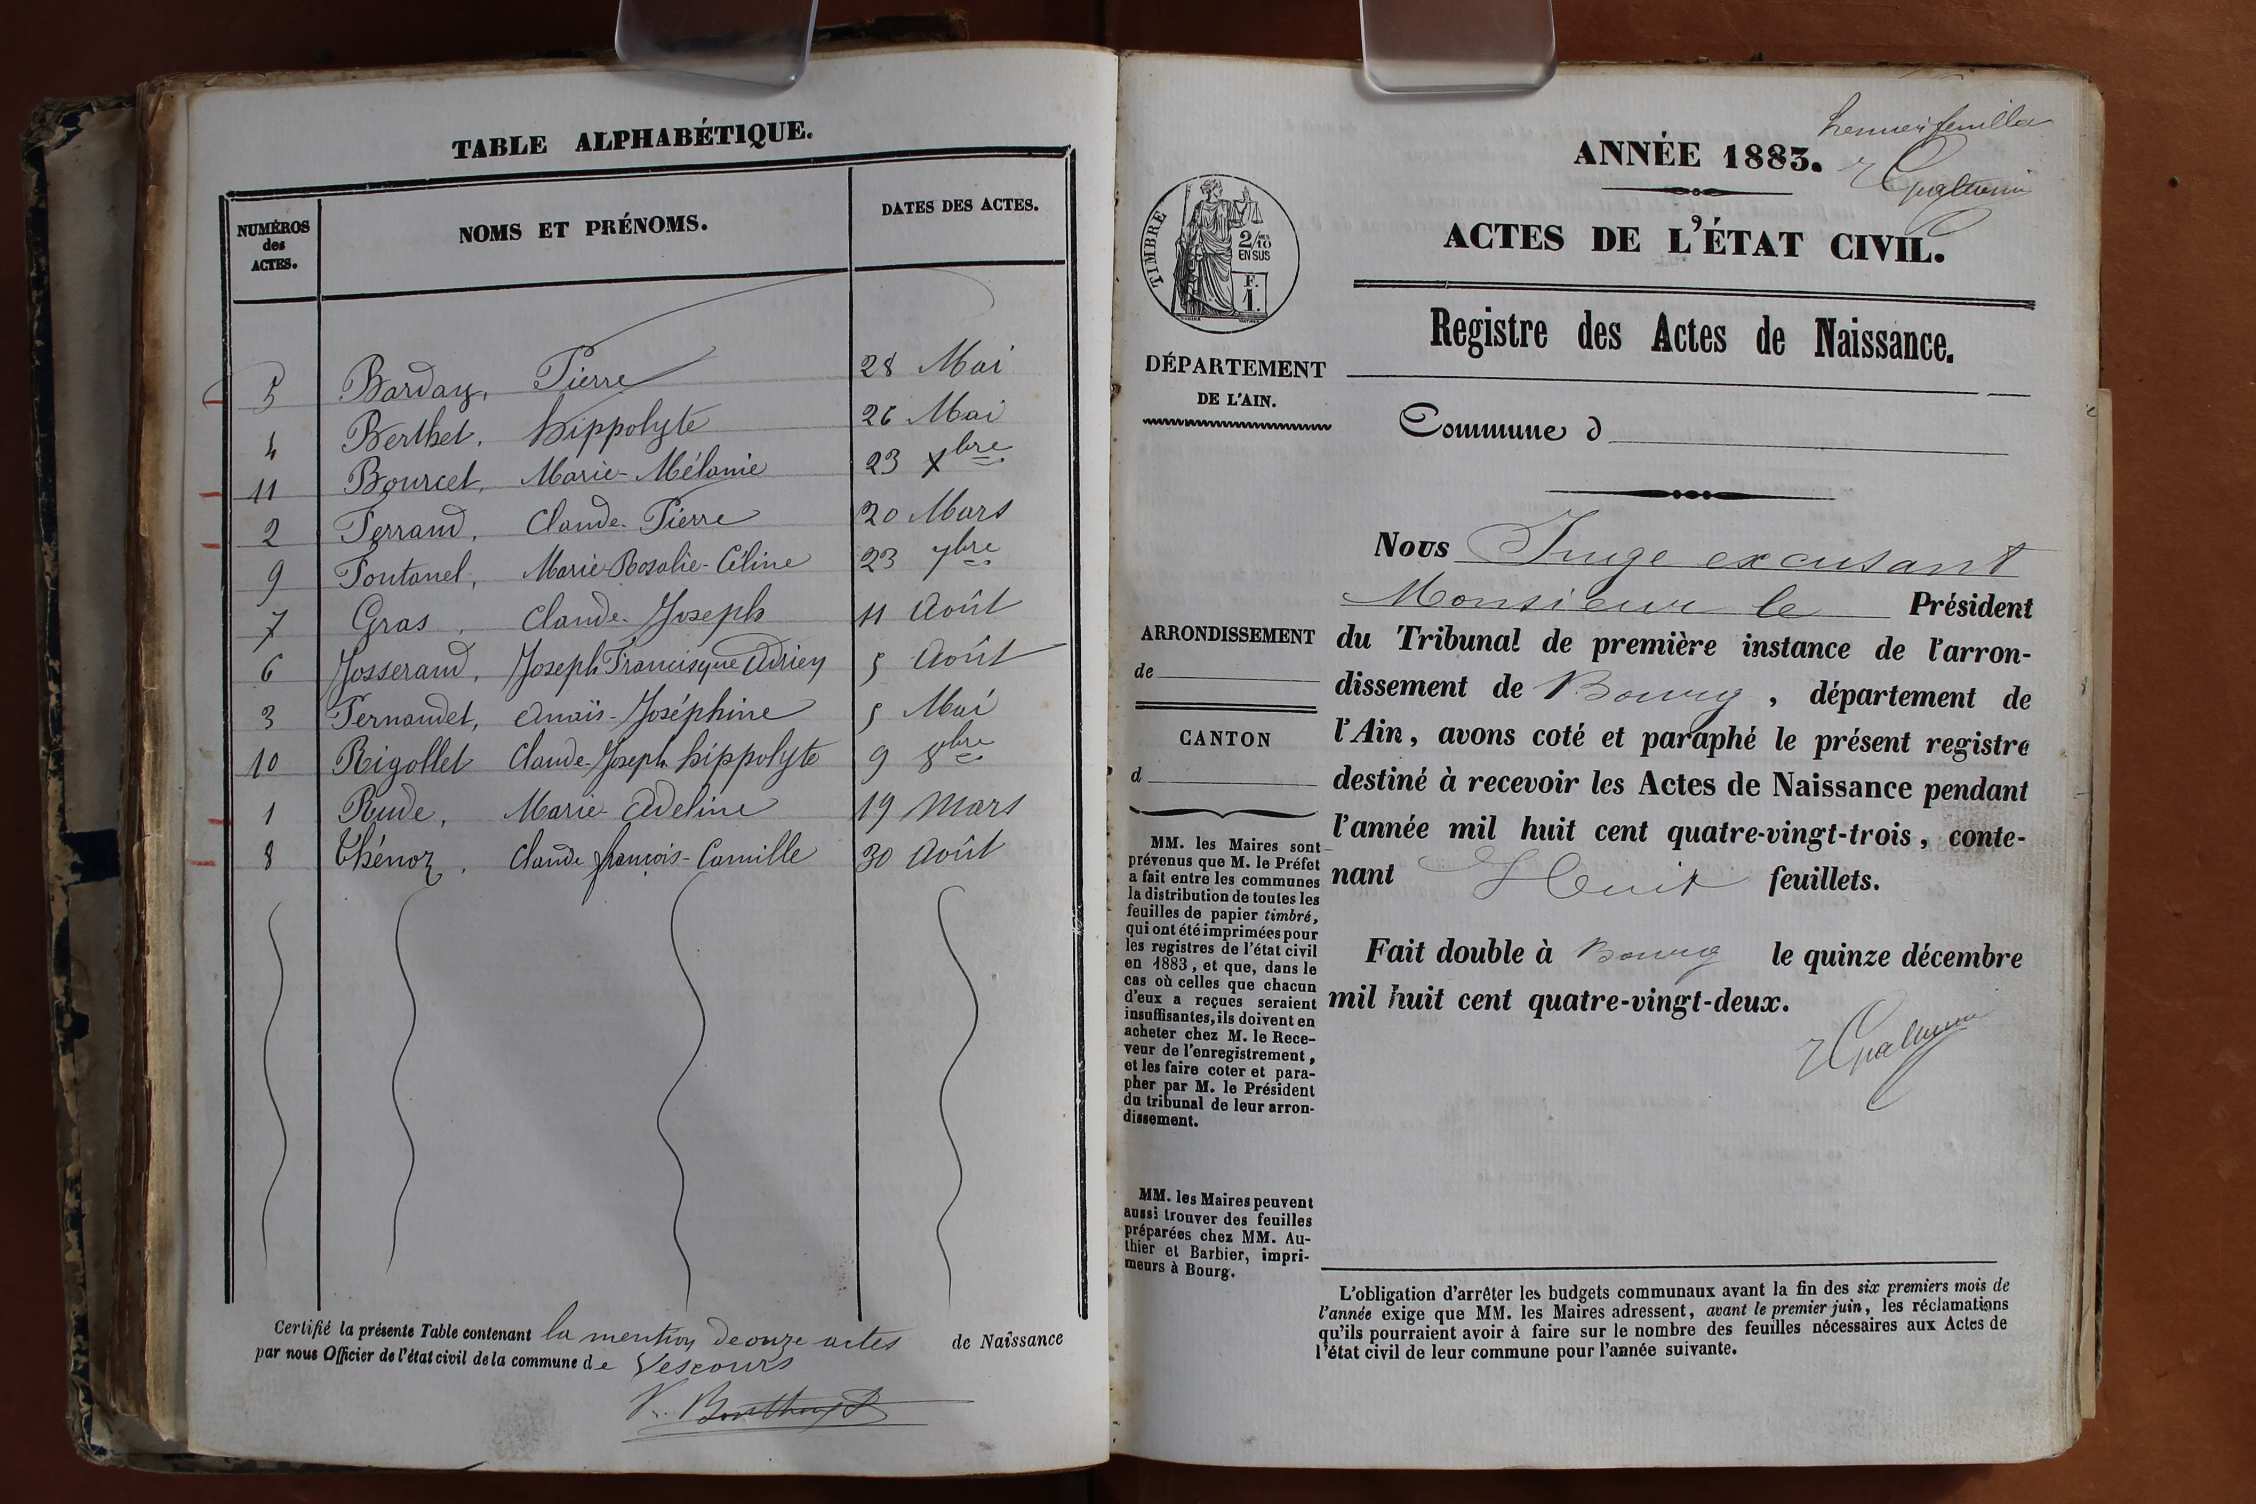 TABLE ALPHABÉTIQUE.
NUMÉROS des ACTES. NOMS ET PRÉNOMS. DATES DES ACTES.
5 Barday, Pierre 28 Mai
4 Berthet, hippolyte 26 Mai
11 Bourcet, Marie-Mélanie 23 Xbre
2 Ferrand, Claude-Pierre 20 Mars
9 Fontanel, Marie-Rosalie-Céline 23 7bre
7 Gras, Claude-Joseph 11 Août
6 Josserand, Joseph Francisque Adrien 5 Août
3 Pernaudet, Anaïs-Joséphine 5 Mai
10 Rigollet Claude-Joseph hippolyte 9 8bre
1 Rude, Marie-Adeline 19 Mars
8 Thénoz, Claude françois-Camille 30 Août
Certifié la présente Table contenant la mention de onze actes de Naissance
par nous Officier de l'état civil de la commune de Vescours
premier feuillet
ANNÉE 1883.
ACTES DE L'ÉTAT CIVIL.
TIMBRE
2/10 EN SUS
F. 1.
Registre des Actes de Naissance.
DÉPARTEMENT
DE L'AIN.
Commune d
ARRONDISSEMENT
de
CANTON
d
Nous Juge excusant
Monsieur le Président
du Tribunal de première instance de l'arron-
dissement de Bourg, département de
l'Ain, avons coté et paraphé le présent registre
destiné à recevoir les Actes de Naissance pendant
l'année mil huit cent quatre-vingt-trois, conte-
nant Huit feuillets.
Fait double à Bourg le quinze décembre
mil huit cent quatre-vingt-deux.
MM. les Maires sont
prévenus que M. le Préfet
a fait entre les communes
la distribution de toutes les
feuilles de papier timbré,
qui ont été imprimées pour
les registres de l'état civil
en 1883, et que, dans le
cas où celles que chacun
d'eux a reçues seraient
insuffisantes, ils doivent en
acheter chez M. le Rece-
veur de l'enregistrement,
et les faire coter et para-
pher par M. le Président
du tribunal de leur arron-
dissement.
MM. les Maires peuvent
aussi trouver des feuilles
préparées chez MM. Au-
thier et Barbier, impri-
meurs à Bourg.
L'obligation d'arrêter les budgets communaux avant la fin des six premiers mois de
l'année exige que MM. les Maires adressent, avant le premier juin, les réclamations
qu'ils pourraient avoir à faire sur le nombre des feuilles nécessaires aux Actes de
l'état civil de leur commune pour l'année suivante.